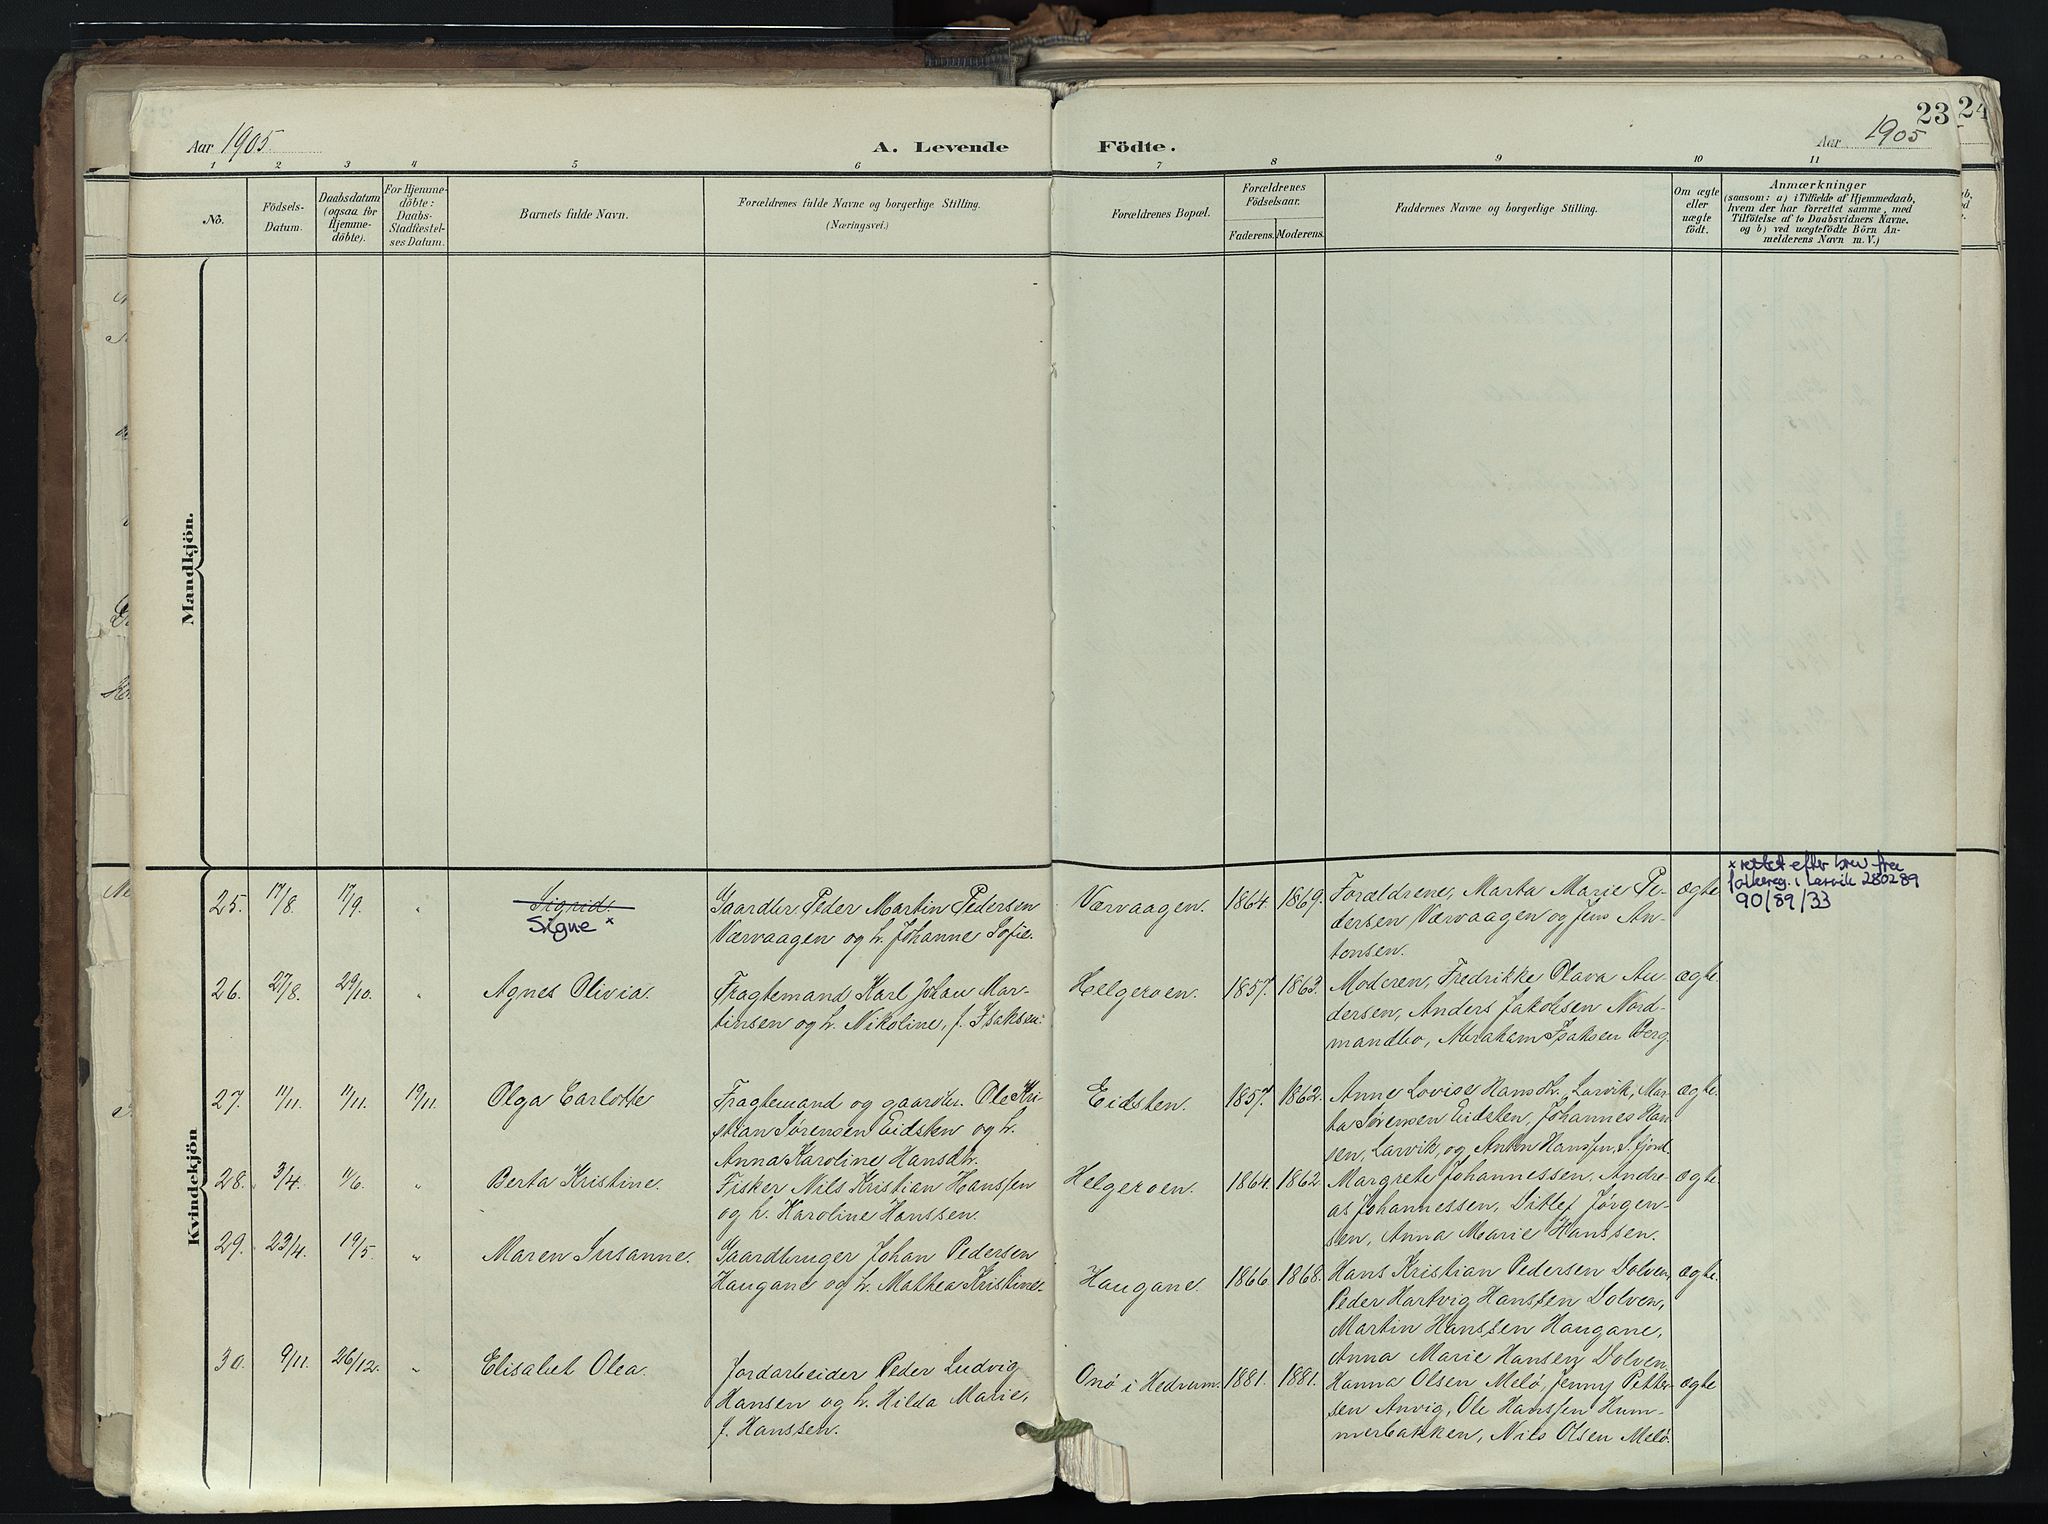 23
24
Aar 1905.
A. Levende Födte.
Aar 1905
1 2 3 4 5 6 7 8 9 10 11
No.
Födsels-
Datum.
Daabsdatum
(ogsaa for
Hjemme-
döbte).
For Hjemme-
döbte:
Daabs-
Stadfæstel-
ses Datum.
Barnets fulde Navn.
Forældrenes fulde Navne og borgerlige Stilling.
(Næringsvei.)
Forældrenes Bopæl.
Forældrenes
Födselsaar.
Faderens. Moderens.
Faddernes Navne og borgerlige Stilling.
Om ægte
eller
uægte
født.
Anmærkninger
(saasom: a) i Tilfælde af Hjemmedaab,
hvem der har forrettet samme, med
Tilföielse af to Daabsvidners Navne.
og b) ved uægtefödte Börn An-
melderens Navn m. V.)
Mandkjön.
Kvindekjön
25. 17/8. 17/9. „ Sigrid.
Signe x
Gaardbr. Peder Martin Pedersen
Værvaagen og h. Johanne Sofie.
Værvaagen. 1864. 1869.
Forældrene, Marta Marie Pe-
dersen Værvaagen og Jens An-
tonsen.
ægte
x rettet efter brev fra
folkereg. i Larvik 280289
90/89/33
26. 27/8. 29/10. „ Agnes Olivia.
Fragtemand Karl Johan Mar-
tinsen og h. Nikoline, f. Isaksen.
Helgeroen. 1857. 1863.
Moderen, Fredrikke Olava An-
dersen, Anders Jakobsen Nord-
mandbo, Abraham Isaksen Berg.
ægte.
27. 11/11. 11/11. 19/11. Olga Carlotte
Fragtemand og gaardbr. Ole Kri-
stian Sørensen Eidsten og h.
Anna Karoline Hansdtr.
Eidsten. 1857. 1862.
Anne Lovise Hansdtr. Larvik, Mar-
ta Sørensen Eidsten, Johannes Han-
sen, Larvik, og Anton Hanssen, S.fjord.
ægte.
28. 3/4. 11/6. „ Berta Kristine.
Fisker Nils Kristian Hanssen
og h. Karoline Hanssen.
Helgeroen. 1864. 1862.
Margrete Johannessen, Andre-
as Johannessen, Ditlef Jørgen-
sen, Anna Marie Hanssen.
ægte.
29. 23/4. 19/5. „ Maren Susanne.
Gaardbruger Johan Pedersen
Haugane og h. Mathea Kristine.
Haugane. 1866. 1868.
Hans Kristian Pedersen Dolven,
Peder Hartvig Hanssen Dolven,
Martin Hanssen Haugane,
Anna Marie Hansen Dolven.
ægte.
30. 9/11. 26/12. „ Elisabet Olea.
Jordarbeider Peder Ludvig
Hansen og h. Hilda Marie,
f. Hanssen.
Onø i Hedrum. 1881. 1881.
Hanna Olsen Melø, Jenny Petter-
sen Anvig, Ole Hanssen Hum-
merbakken, Nils Olsen Melø.
ægte